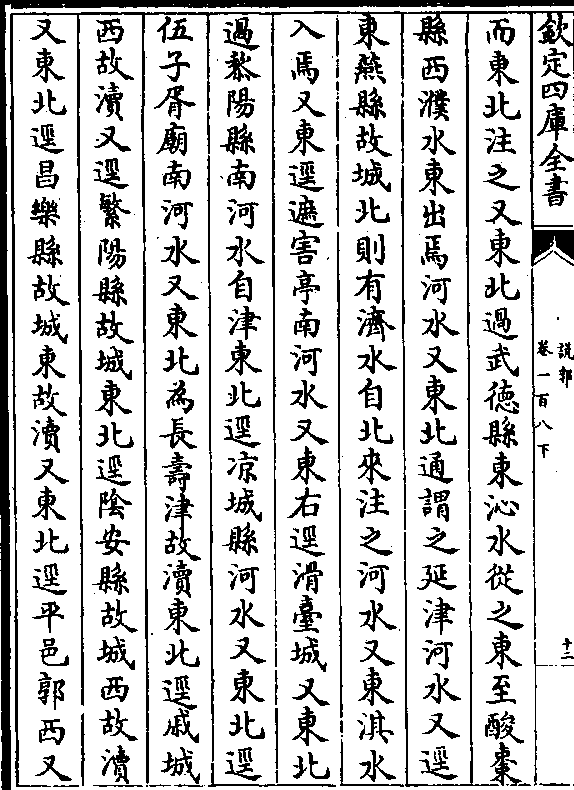 欽定四庫全書
說郛
卷一百八下
十二
而東北注之又東北過武德縣東沁水從之東至酸棗
縣西濮水東出焉河水又東北通謂之延津河水又逕
東燕縣故城北則有濟水自北來注之河水又東淇水
入焉又東逕遮害亭南河水又東右逕滑臺城又東北
過黎陽縣南河水自津東北逕凉城縣河水又東北逕
伍子胥廟南河水又東北為長壽津故瀆東北逕戚城
西故瀆又逕繁陽縣故城東北逕陰安縣故城西故瀆
又東北逕昌樂縣故城東故瀆又東北逕平邑郭西又